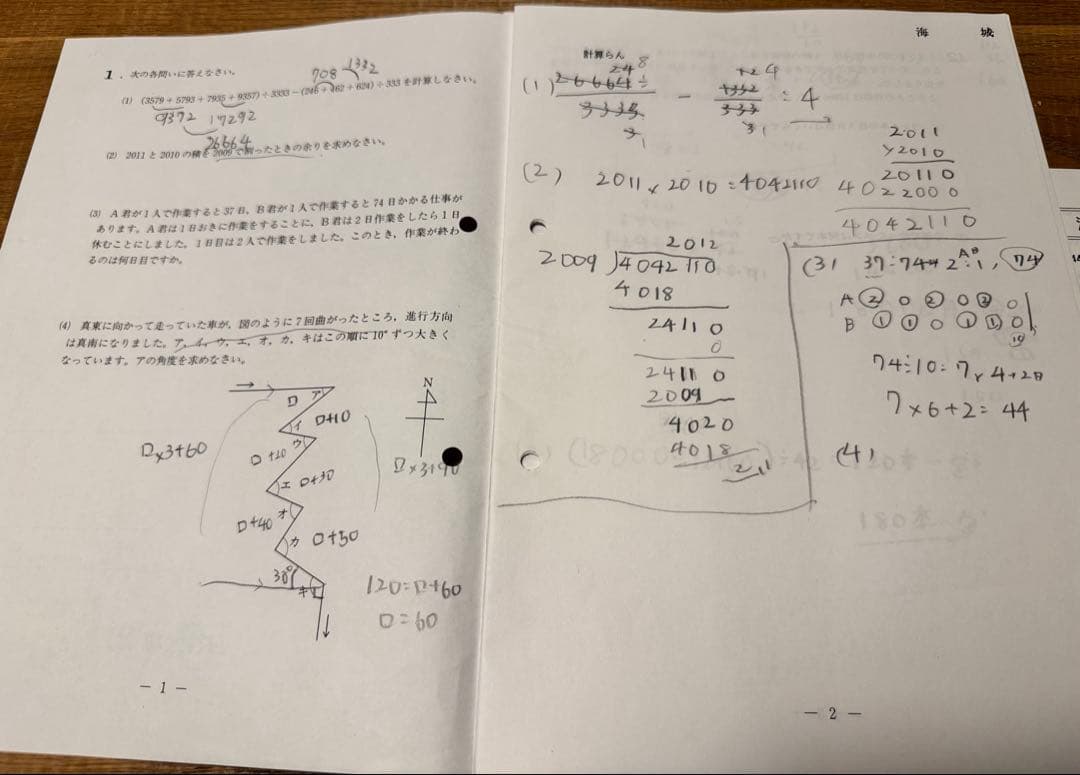 1．次の各問いに答えなさい。
708 1332
(1) (3579＋5793＋7935＋9357)÷3333－(246＋462＋624)÷333を計算しなさい。
9372 17292
26664
(2) 2011と2010の積を2009で割ったときの余りを求めなさい。
(3) A君が1人で作業すると37日、B君が1人で作業すると74日かかる仕事が
あります。A君は1日おきに作業をすることに、B君は2日作業をしたら1日
休むことにしました。1日目は2人で作業をしました。このとき、作業が終わ
るのは何日目ですか。
(4) 真東に向かって走っていた車が、図のように7回曲がったところ、進行方向
は真南になりました。ア、イ、ウ、エ、オ、カ、キはこの順に10°ずつ大きく
なっています。アの角度を求めなさい。
N
ロ ア
イ ロ+10
ロ×3+60
ロ+20 ウ
ロ×3+90
エ ロ+30
ロ+40 オ
カ ロ+50
30°
キ
120=ロ+60
ロ=60
－ 1 －
海 城
計算らん
24 8
12 4
(1) 26664 － 1332 = 4
3333 333
3 1 3 1
2011
×2010
20110
402200 0
4042110
(2) 2011×2010=4042110
2012
2009)4042110
4018
24110
0
24110
2009
4020
4018
2
(3) 37:74→2:1, 74
A B
A ② 0 ② 0 ② 0
B ① ① 0 ① ① 0
10
74÷10=7×4+2日
7×6+2=44
(4)
－ 2 －